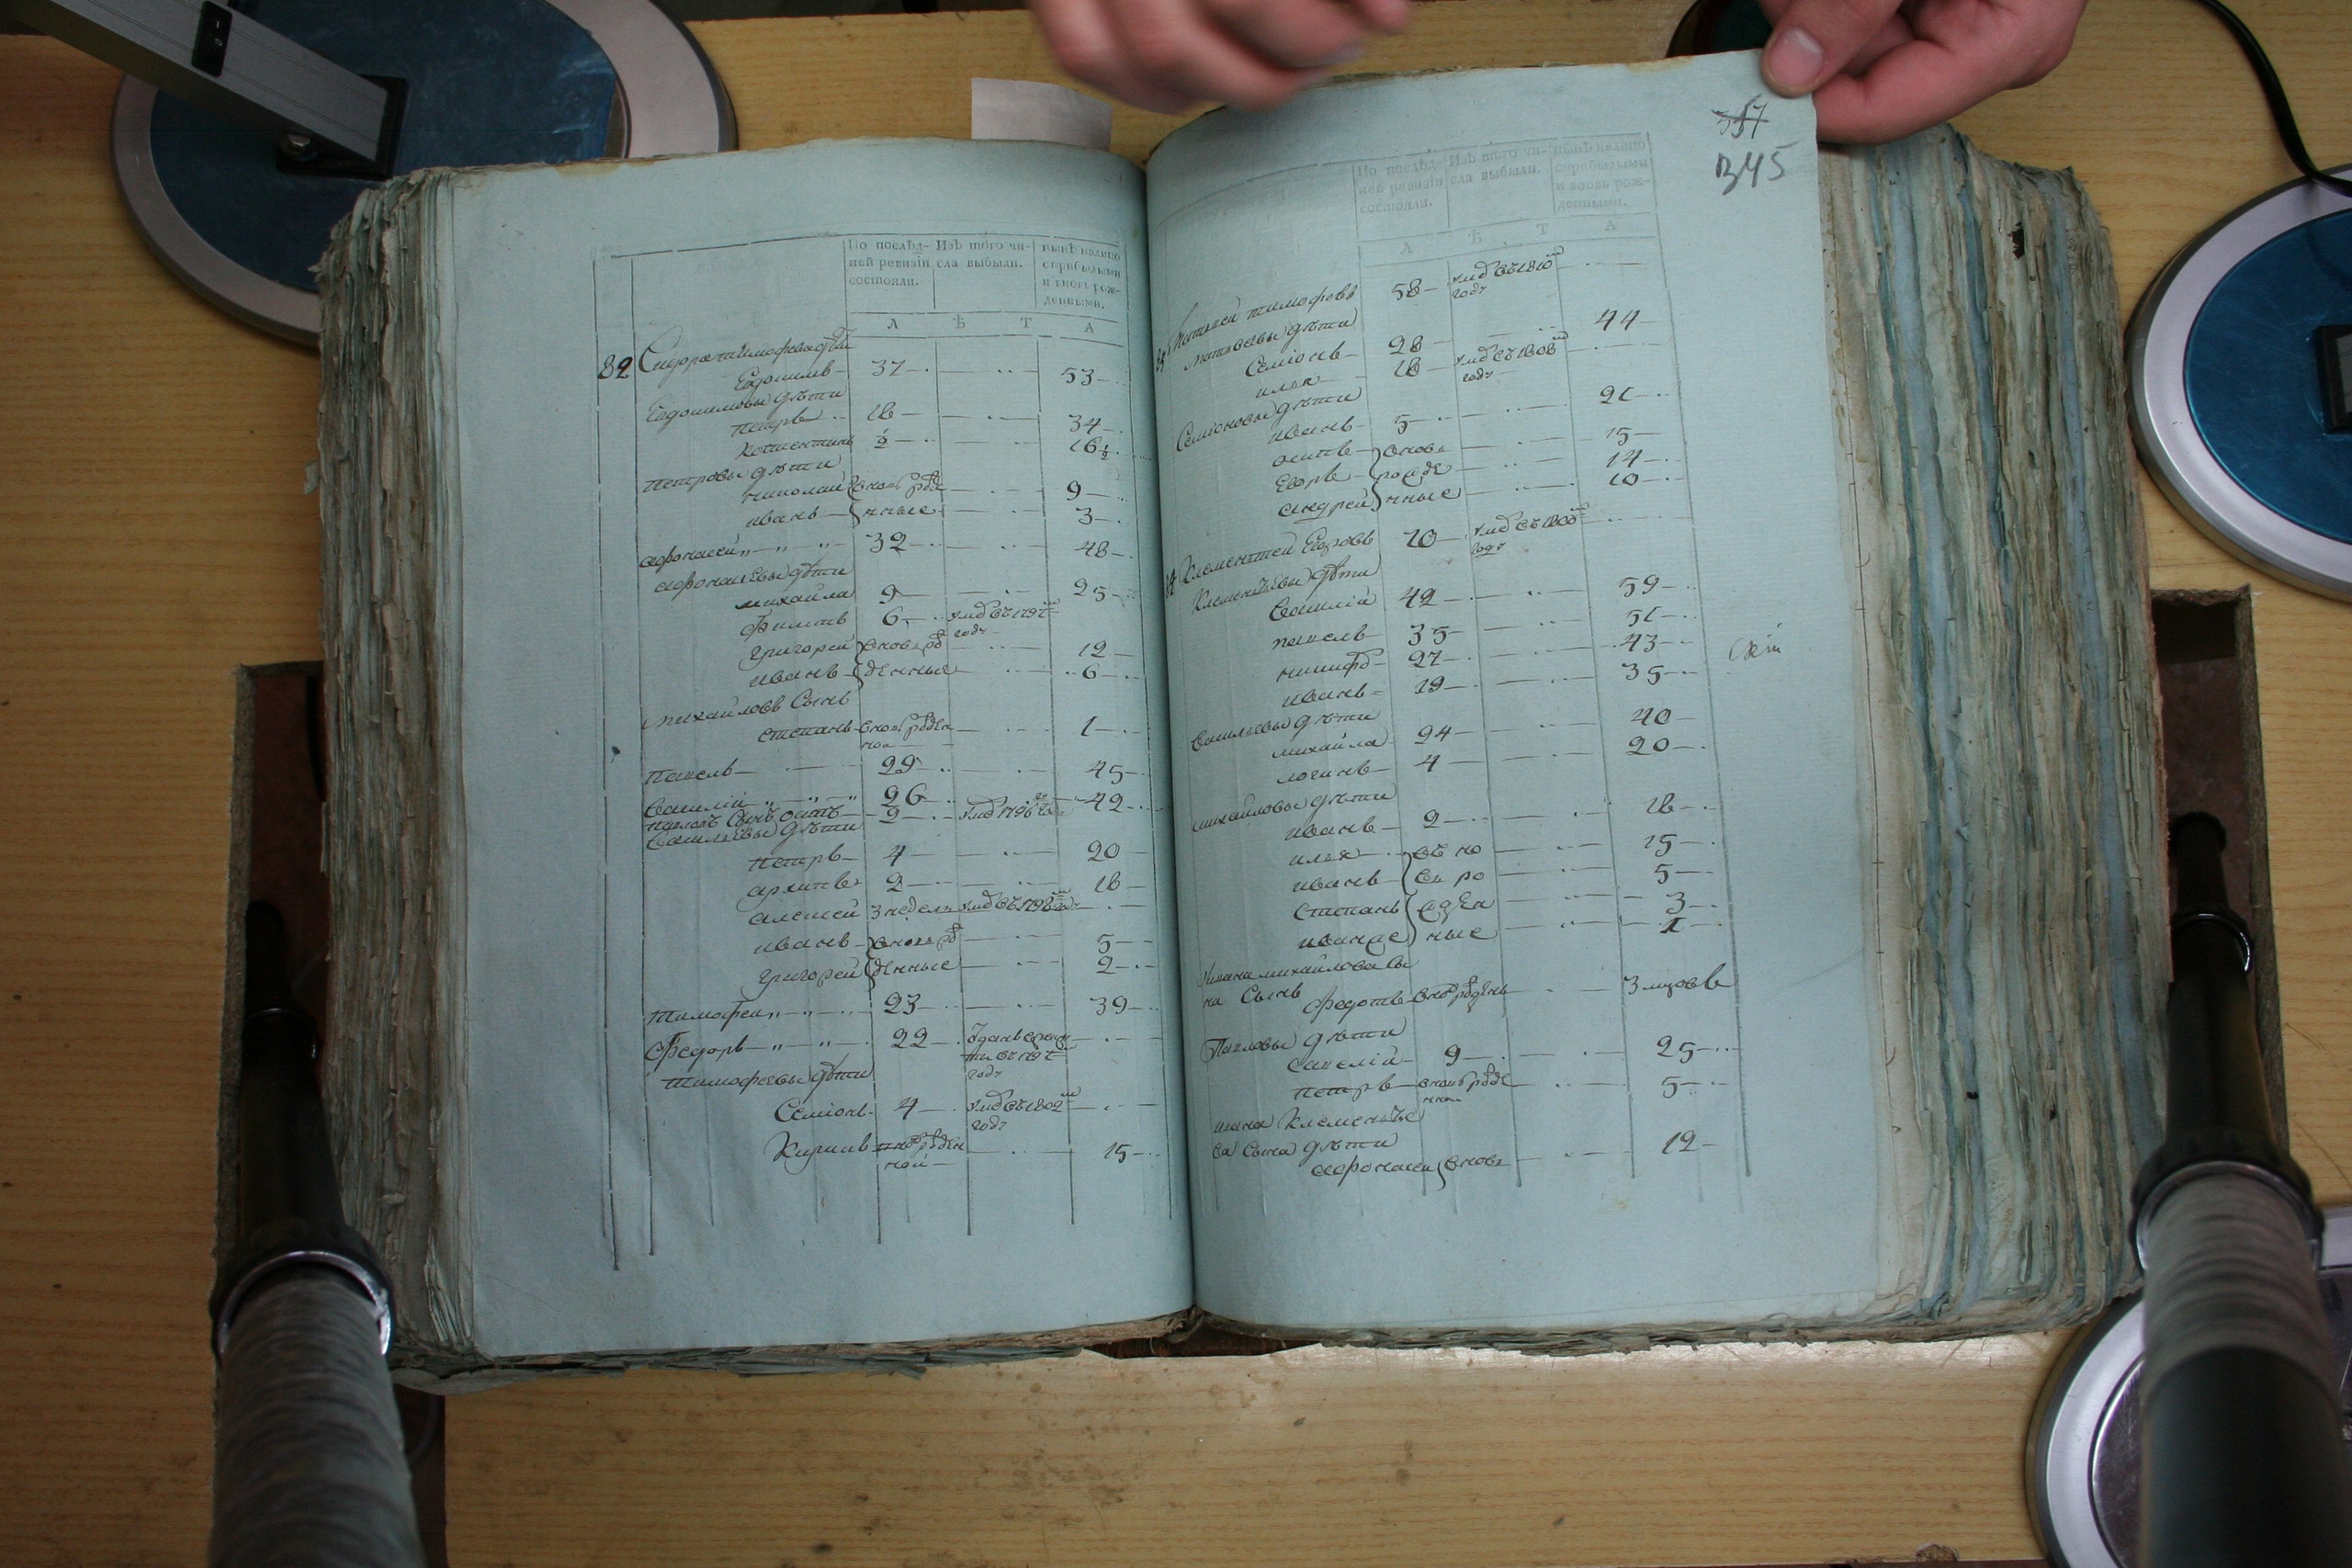 По послѣд-
ней ревизіи
состояли.
Изъ того чи-
сла выбыли.
нынѣ налицо
с прибылыми
и вновь рож-
денными.
Л Ѣ Т А
82 Сидора тимофева дѣти
Евдокимъ 37 53
Евдокимовы дѣти
петръ 18 34
½ 16½
петровы дѣти
николай вновь рожде 9
иванъ нные 3
афонасей 32 48
афонасьевы дѣти
михайла 9 25
филипъ 6 умѣ въ 1797м
году
григорей вновь рож 12
иванъ денные 6
михайловъ сынъ
степанъ вновь рожден 1
ной
павелъ 29 45
василій 26 42
павловъ сынъ 2 умѣ 1796
васильевы дѣти
петръ 4 20
архипъ 2 18
алексей 3 недель умѣ въ 1798м году
иванъ вновь рож 5
григорей денные 2
тимофей 23 39
федоръ 22 зданъ врекру
ты въ 1797
году
тимофеевы дѣти
семіонъ 4 умѣ въ 1802м
году
вновь рожден 15
ной
357
345
По послѣд-
ней ревизіи
состояли.
Изъ того чи-
сла выбыли.
нынѣ налицо
с прибылыми
и вновь рож-
денными.
Л Ѣ Т А
матвей тимофевъ 58 умѣ въ 1810м
году
матвеевы дѣти
семіонъ 28 44
илья 18 умѣ въ 1808м
году
семіоновы дѣти
иванъ 5 21
осипъ вновь 15
егоръ рожде 14
андрей нные 10
клементей егоровъ 70 умѣ въ 1800м
году
клементьевы дѣти
василій 42 59
павелъ 35 51
никифоръ 27 43
иванъ 19 35
васильевы дѣти
михайла 24 40
логинъ 4 20
михайловы дѣти
иванъ 2 18
илья въ но 15
иванъ въ ро 5
степанъ жден 3
иванже ные 1
ивана михайлова сы
на сынъ
федотъ вновь рожденъ 3 мцовъ
павловы дѣти
савелій 9 25
петръ вновь рожде 5
нной
ивана клеменьтье
ва сына дѣти
афонасей вновь 12